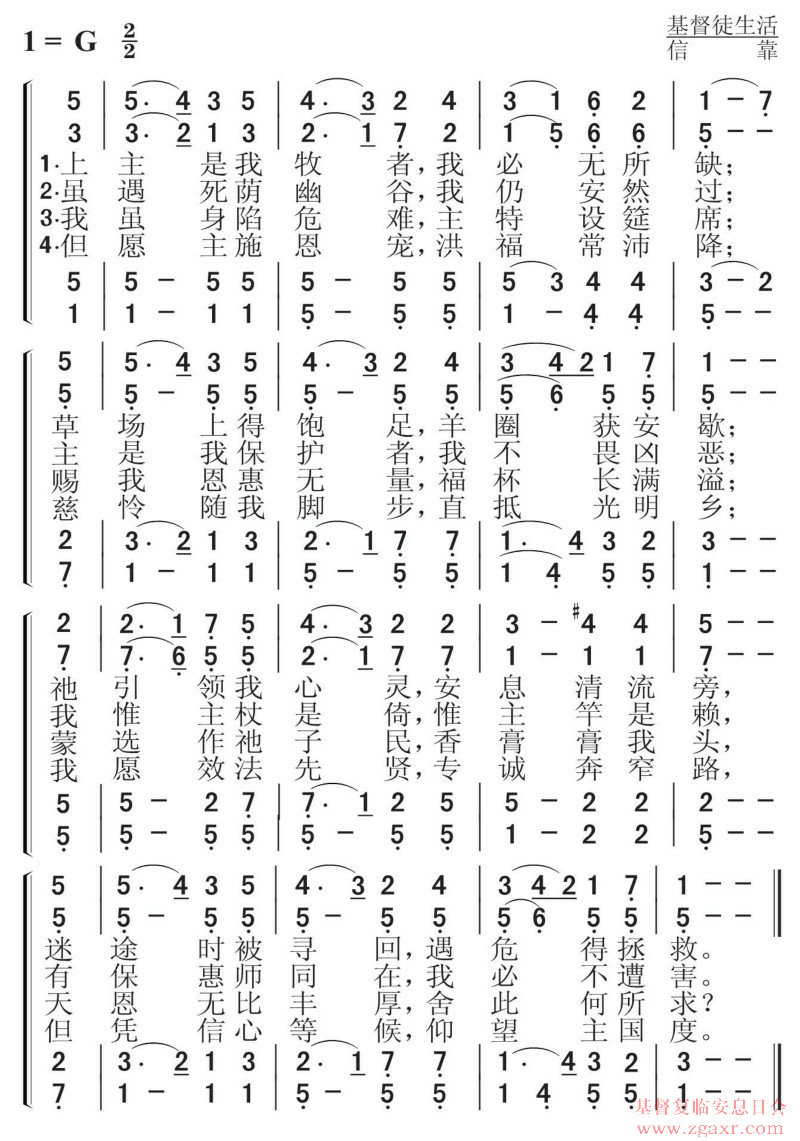 1 = G 2/2
基督徒生活
信 靠
5 5· 4 3 5 4· 3 2 4 3 1 6 2 1 – 7
3 3· 2 1 3 2· 1 7 2 1 5 6 6 5 – –
1·上 主 是我 牧 者,我 必 无所 缺;
2·虽 遇 死荫 幽 谷,我 仍 安然 过;
3·我 虽 身陷 危 难,主 特 设筵 席;
4·但 愿 主施 恩 宠,洪 福 常沛 降;
5 5 – 5 5 5 – 5 5 5 3 4 4 3 – 2
1 1 – 1 1 5 – 5 5 1 – 4 4 5 – –
5 5· 4 3 5 4· 3 2 4 3 4 2 1 7 1 – –
5 5 – 5 5 5 – 5 5 5 6 5 5 5 – –
草 场 上得 饱 足,羊 圈 获安 歇;
主 是 我保 护 者,我 不 畏凶 恶;
赐 我 恩惠 无 量,福 杯 长满 溢;
慈 怜 随我 脚 步,直 抵 光明 乡;
2 3· 2 1 3 2· 1 7 7 1· 4 3 2 3 – –
7 1 – 1 1 5 – 5 5 1 4 5 5 1 – –
2 2· 1 7 5 4· 3 2 2 3 – #4 4 5 – –
7 7· 6 5 5 2· 1 7 7 1 – 1 1 7 – –
祂 引 领我 心 灵,安 息 清流 旁,
我 惟 主杖 是 倚,惟 主 竿是 赖,
蒙 选 作祂 子 民,香 膏 膏我 头,
我 愿 效法 先 贤,专 诚 奔窄 路,
5 5 – 2 7 7· 1 2 5 5 – 2 2 2 – –
5 5 – 5 5 5 – 5 5 1 – 2 2 5 – –
5 5· 4 3 5 4· 3 2 4 3 4 2 1 7 1 – –
5 5 – 5 5 5 – 5 5 5 6 5 5 5 – –
迷 途 时被 寻 回,遇 危 得拯 救。
有 保 惠师 同 在,我 必 不遭 害。
天 恩 无比 丰 厚,舍 此 何所 求?
但 凭 信心 等 候,仰 望 主国 度。
2 3· 2 1 3 2· 1 7 7 1· 4 3 2 3 – –
7 1 – 1 1 5 – 5 5 1 4 5 5 1 – –
基督复临安息日会
www.zgaxr.com